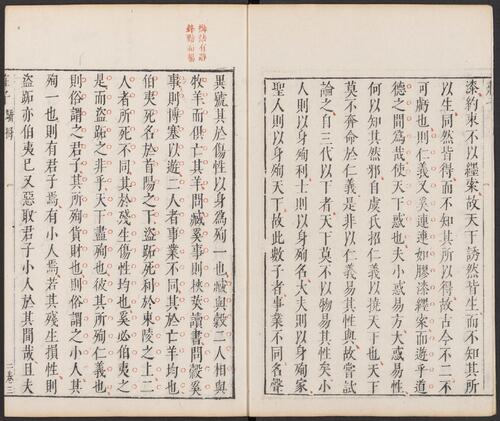 漆約束不以纆索故天下誘然皆生而不知其所
以生同然皆得而不知其所以得故古今不二不
可虧也則仁義又奚連連如膠漆纆索而遊乎道
德之間爲哉使天下惑也夫小惑易方大惑易性
何以知其然邪自虞氏招仁義以撓天下也天下
莫不奔命於仁義是非以仁義易其性與故嘗試
論之自三代以下者天下莫不以物易其性矣小
人則以身殉利士則以身殉名大夫則以身殉家
聖人則以身殉天下故此數子者事業不同名聲
異號其於傷性以身爲殉一也臧與穀二人相與
牧羊而俱亡其羊問臧奚事則挾筴讀書問穀奚
事則博塞以遊二人者事業不同其於亡羊均也
伯夷死名於首陽之下盜跖死利於東陵之上二
人者所死不同其於殘生傷性均也奚必伯夷之
是而盜跖之非乎天下盡殉也彼其所殉仁義也
則俗謂之君子其所殉貨財也則俗謂之小人其
殉一也則有君子焉有小人焉若其殘生損性則
盜跖亦伯夷已又惡取君子小人於其間哉且夫